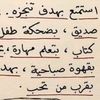 استمتع بهدف تنجزه .
صديق ، بضحكة طفل
كتاب ، بتعلم مهارة ،
بقهوة صباحية ، بهد
بقرب من تحب